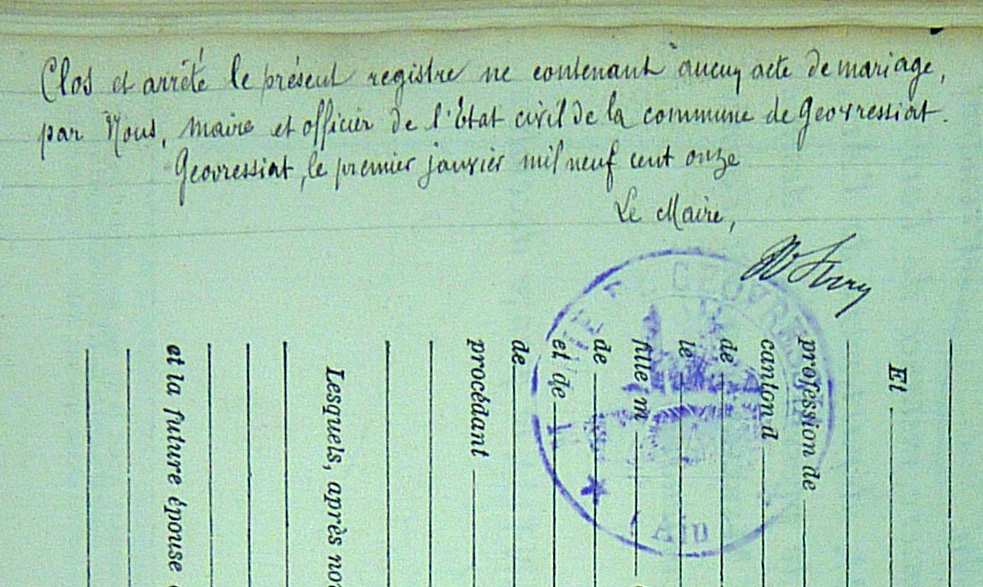 Clos et arrêté le présent registre ne contenant aucun acte de mariage,
par Nous, Maire et officier de l'Etat civil de la commune de Geovressiat.
Geovressiat, le premier janvier mil neuf cent onze
Le Maire,
MAIRIE DE GEOVRESSIAT
(Ain)
Et
profession de
canton d
de
le
fille m
de
et de
de
procédant
Lesquels, après
et la future épouse